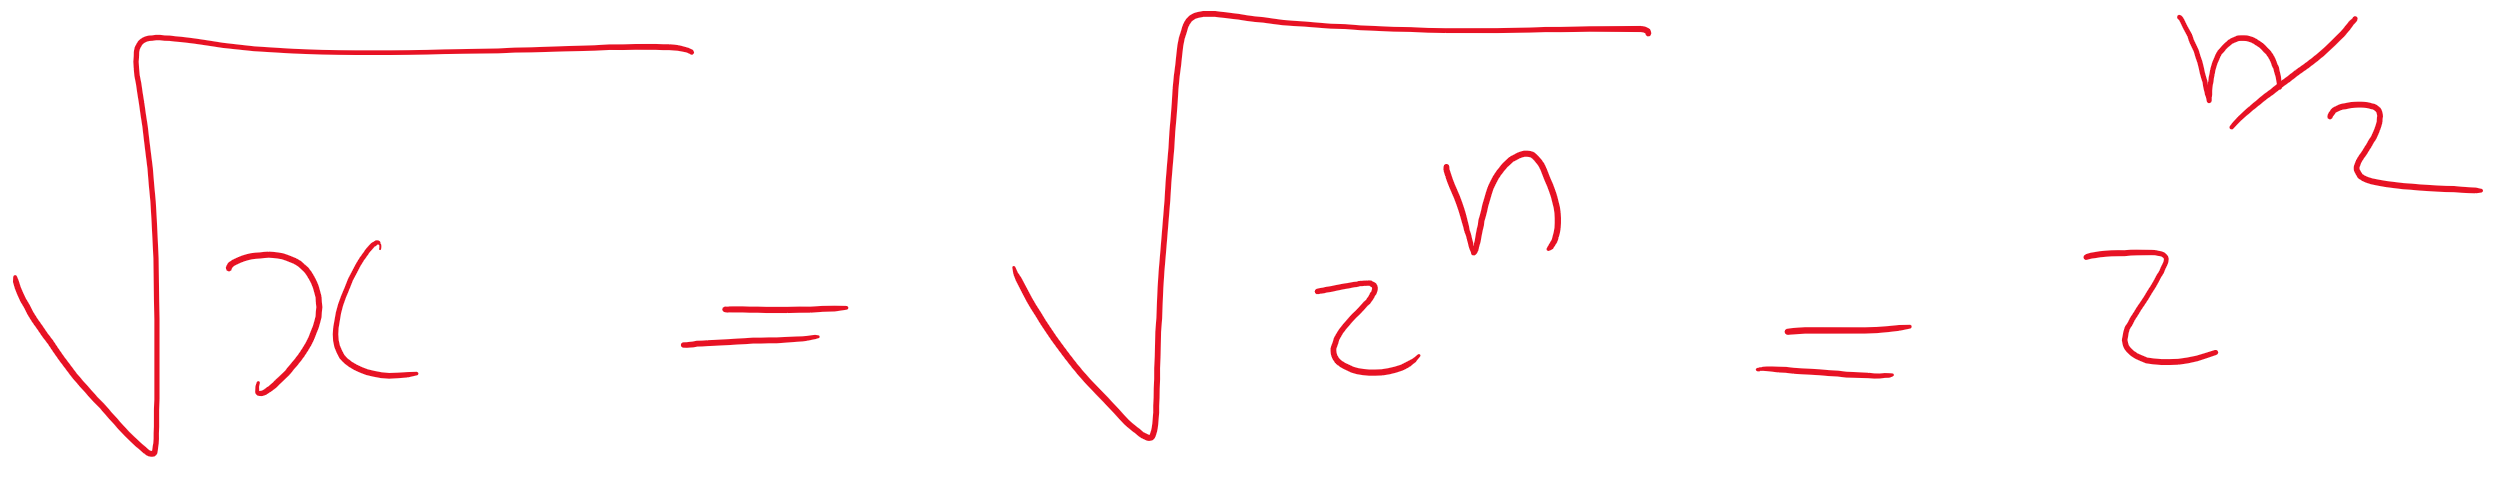 √x = √2^n = 2^n/2